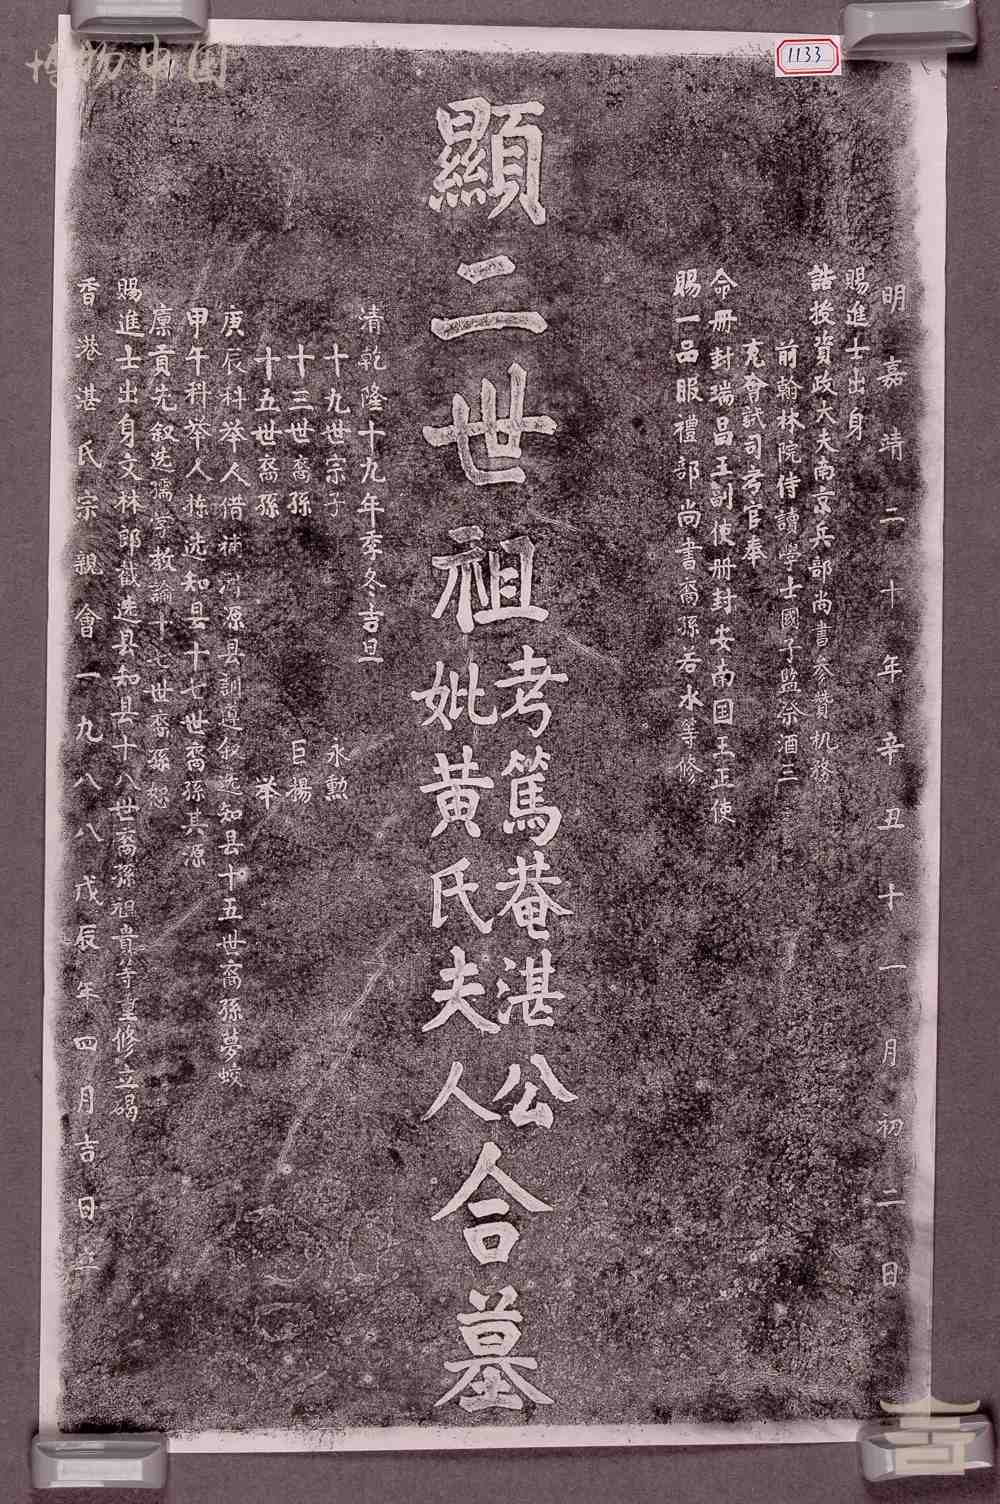 博物中国
1133
明嘉靖二十年辛丑十一月初二日
賜進士出身
誥授資政大夫南京兵部尚書參贊机務
前翰林院侍讀學士國子監祭酒三
充會試司考官奉
命册封瑞昌王副使册封安南国王正使
賜一品服禮部尚書裔孫若水等修
顯二世祖
考篤菴湛公
妣黃氏夫人
合墓
清乾隆十九年季冬吉旦
十九世宗子 永勳
十三世裔孫 巨揚
十五世裔孫 举
庚辰科举人借補河源县訓導叙选知县十五世裔孫夢蛟
甲午科举人拣选知县十七世裔孫其源
廩貢先叙选儒学教諭十七世裔孫恕
賜進士出身文林郎截选县知县十八世裔孫祖貴等重修立碣
香港湛氏宗親會一九八八戊辰年四月吉日立